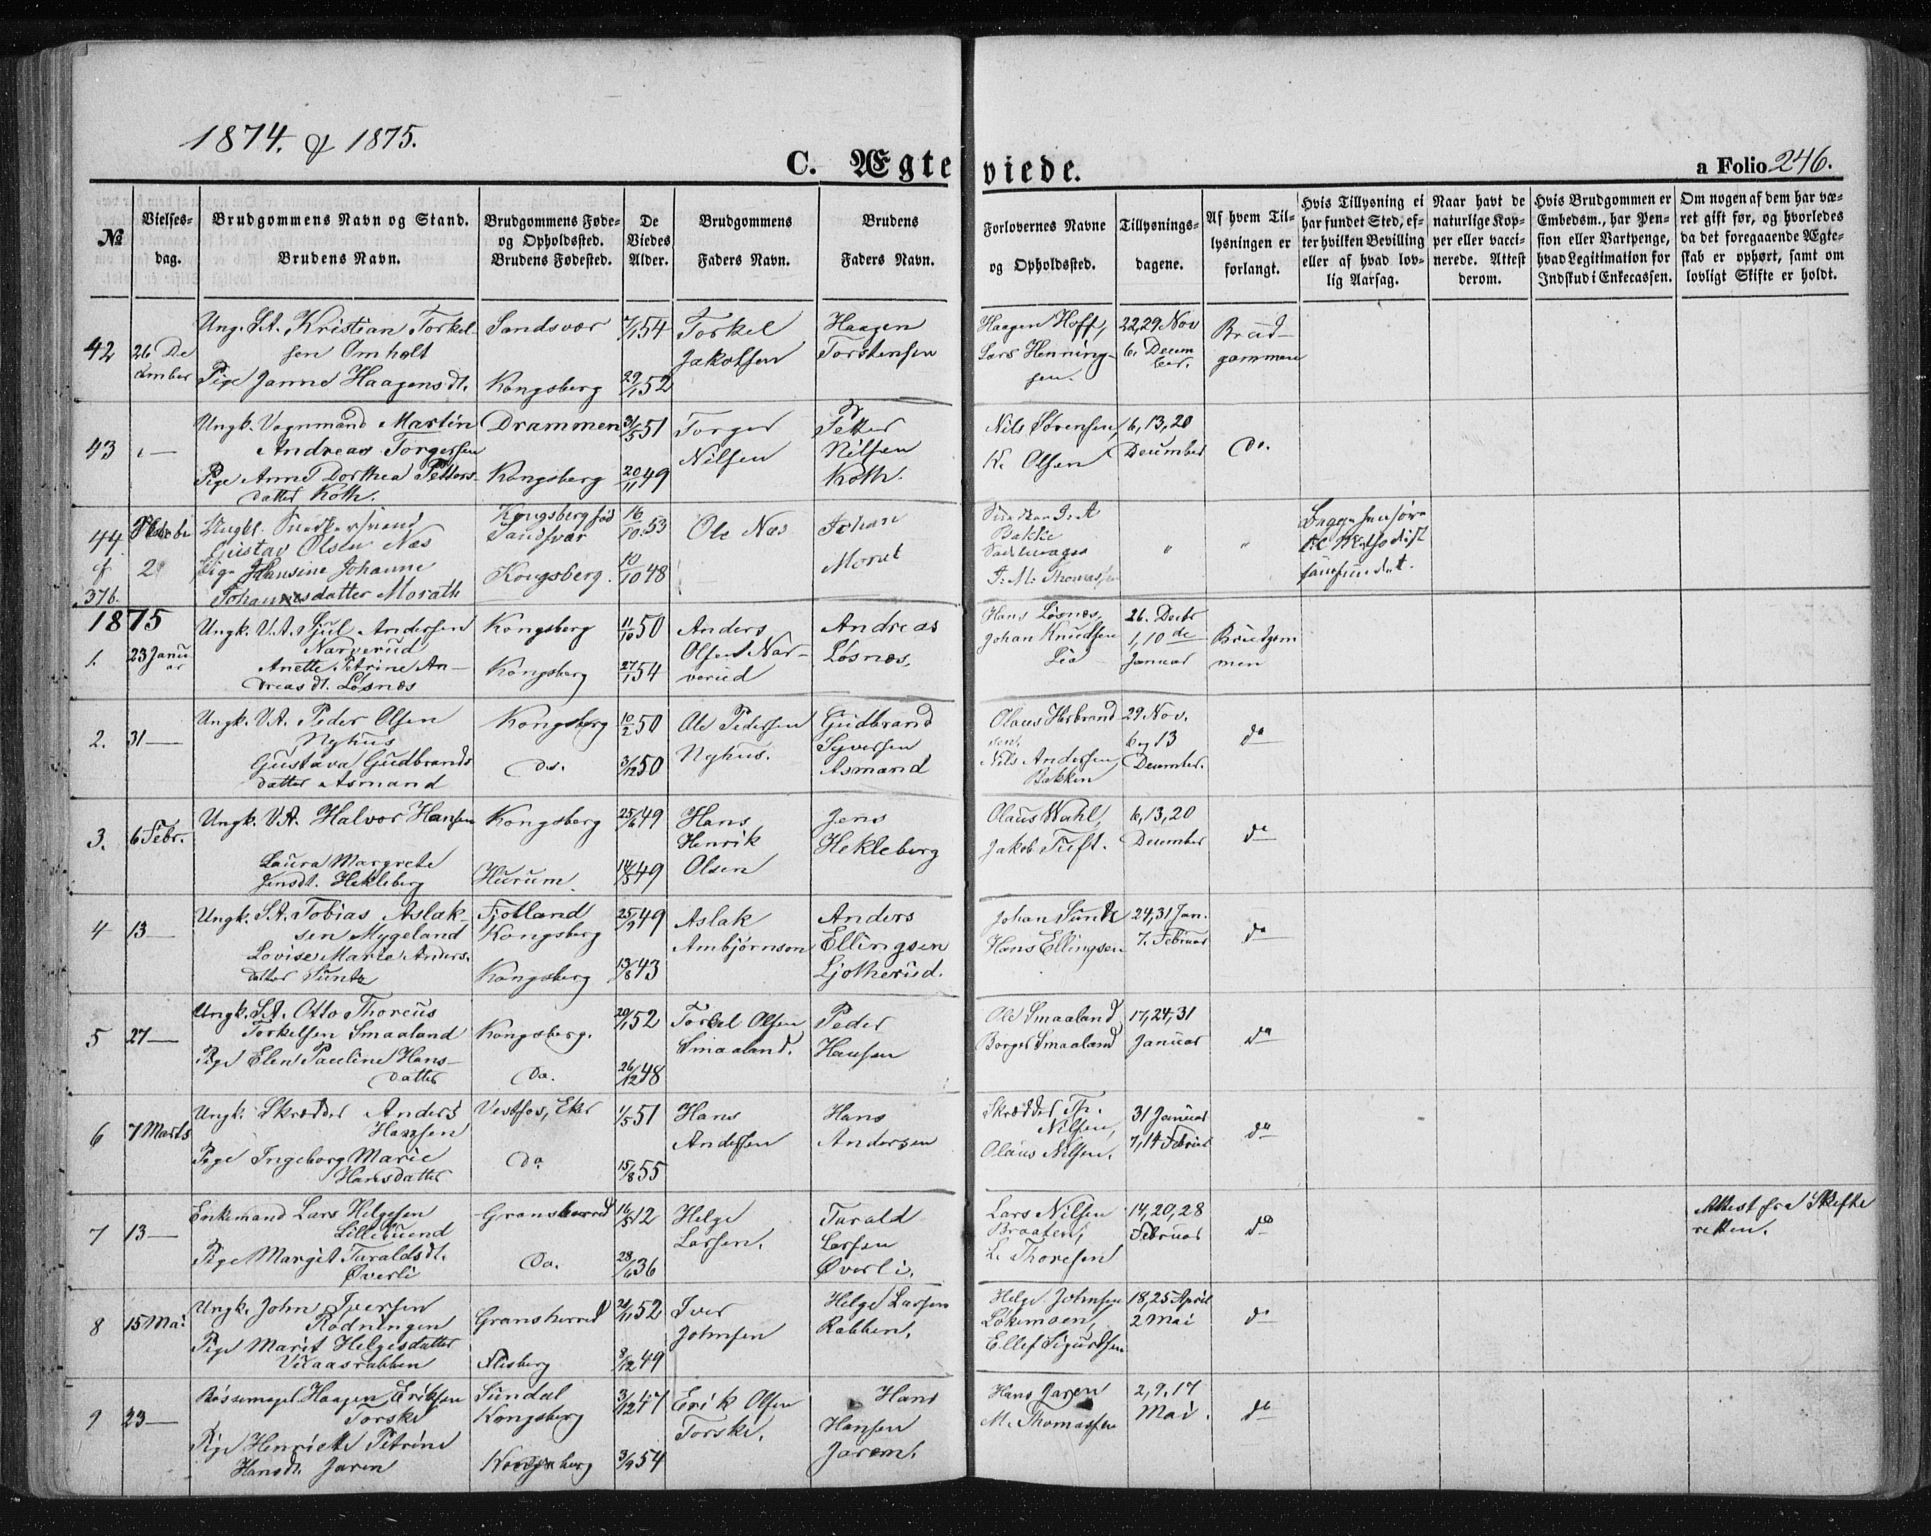 1874. & 1875.
C. Ægteviede.
a Folio 246.
№
Vielses-dag.
Brudgommens Navn og Stand.
Brudens Navn.
Brudgommens Føde- og Opholdssted.
Brudens Fødested.
De Viedes Alder.
Brudgommens Faders Navn.
Brudens Faders Navn.
Forlovernes Navne og Opholdssted.
Tillysnings-dagene.
Af hvem Til-lysningen er forlangt.
Hvis Tillysning ei har fundet Sted, ef-ter hvilken Bevilling eller af hvad lov-lig Aarsag.
Naar havt de naturlige Kop-per eller vacci-nerede. Attest derom.
Hvis Brudgommen er Embedsm., har Pen-sion eller Vartpenge, hvad Legitimation for Indskud i Enkecassen.
Om nogen af dem har væ-ret gift før, og hvorledes da det foregaaende Ægte-skab er ophørt, samt om lovligt Skifte er holdt.
42 26 December
Ung. S.A. Kristian Torkelsen Omholt Sandsvær 7/1 54 Torkel Jakobsen Haagen Torstensen
Pige Janne Haagensdt. Kongsberg 29/1 52
Haagen Hoff, Lars Henningsen. 22, 29 Nov 6. December. Brudgommen
43 "—
Ungk. Vognmand Martin Andreas Torgersen Drammen 31/5 51 Torger Nilsen Petter Nilsen Koth.
Pige Anne Dorthea Pettersdatter Koth. Kongsberg 20/11 49
Nils Sørensen, K. Olsen 6, 13, 20 December Do.
44 f 376. 2
Ungk. Snedkersvend Gustav Olsen Næs Kongsberg fød Sandsvær 16/10 53 Ole Næs Johan Morat
Pige Hansine Johanne Johannesdatter Morath Kongsberg. 10/10 48
Snedker J. A Bakke
J. M. Thomassen " "
Begge henhøre til Methodistsamfundet.
1875
1. 23 Januar
Ungk. V.A. Sjul Andersen Narverud Kongsberg 11/10 50 Anders Olsen Narverud Andreas Løsnæs.
Anette Petrine Andreasdt. Løsnæs Kongsberg 27/1 54
Hans Løsnæs, Johan Knudsen Lia 26. Decbr 1, 10de Januar Brudgommen
2. 31 —
Ungk. V.A. Peder Olsen Nyhus Kongsberg 10/2 50 Ole Pedersen Nyhus. Gudbrand Syversen Asmand
Gustava Gudbrandsdatter Asmand Do. 3/12 50
Olaus Herbrandsen. Nils Andersen Bakken 29 Nov. 6 og 13 December. do
3. 6 Febr.
Ungk. V.A. Halvor Hansen Kongsberg 25/6 49 Hans Henrik Olsen Jens Hekleberg
Laura Margrete Jensdt. Hekleberg Hurum. 14/5 49
Olaus Wahl, Jakob Tuft. 6, 13, 20 December do
4 13 —
Ungk. S.A. Tobias Aslaksen Mygeland Fjotland Kongsberg 25/9 49 Aslak Ambjørnson Anders Ellingsen Ljotherud.
Lovise Marie Andersdatter Sunte Kongsberg 13/8 43
Johan Sunde Hans Ellingsen 24, 31 Jan. 7. Februar do
5 27 —
Ungk. S.A. Otto Thoreus Torkelsen Smaaland Kongsberg. 20/1 52 Torkel Olsen Smaaland. Peder Hansen
Pige Elen Pauline Hansdatter Do. 26/12 48
Ole Smaaland Borger Smaaland 17, 24, 31 Januar do
6 7 Marts
Ungk. Skrædder Anders Hansen Vestfos, Eker 1/5 51 Hans Andersen Hans Andersen
Pige Ingeborg Marie Hansdatter Do 15/8 55
Skrædder Th. Nilsen, Olaus Nilsen. 31 Januar 7, 14 Februar do
7 13 —
Enkemand Lars Helgesen Gransherred 16/5 12 Helge Larsen. Tarald Larsen Øverli.
Pige Margit Taraldsdt. Øverli Do. 28/6 36
Lars Nilsen Braaten, L. Thoresen 14, 20, 28 Februar do
Attest fra Skifteretten.
8 15 Mai
Ungk. John Iversen Rødningen Gransherred 52 Iver Johnsen Helge Larsen Rabben.
Pige Marit Helgesdatter Flesberg 8/12 49
Helge Johnsen Løkemoen, Ellef Sigurdsen 18, 25 April 2 Mai do
9 23 —
Bøssemager Haagen Eriksen Torske Sundal Kongsberg 3/12 47 Erik Olsen Torske. Hans Hansen Jaren.
Pige Henriette Petrine Hansdt. Jaren Kongsberg 3/9 54
Hans Jaren M. Thomassen 2, 9, 17 Mai. do